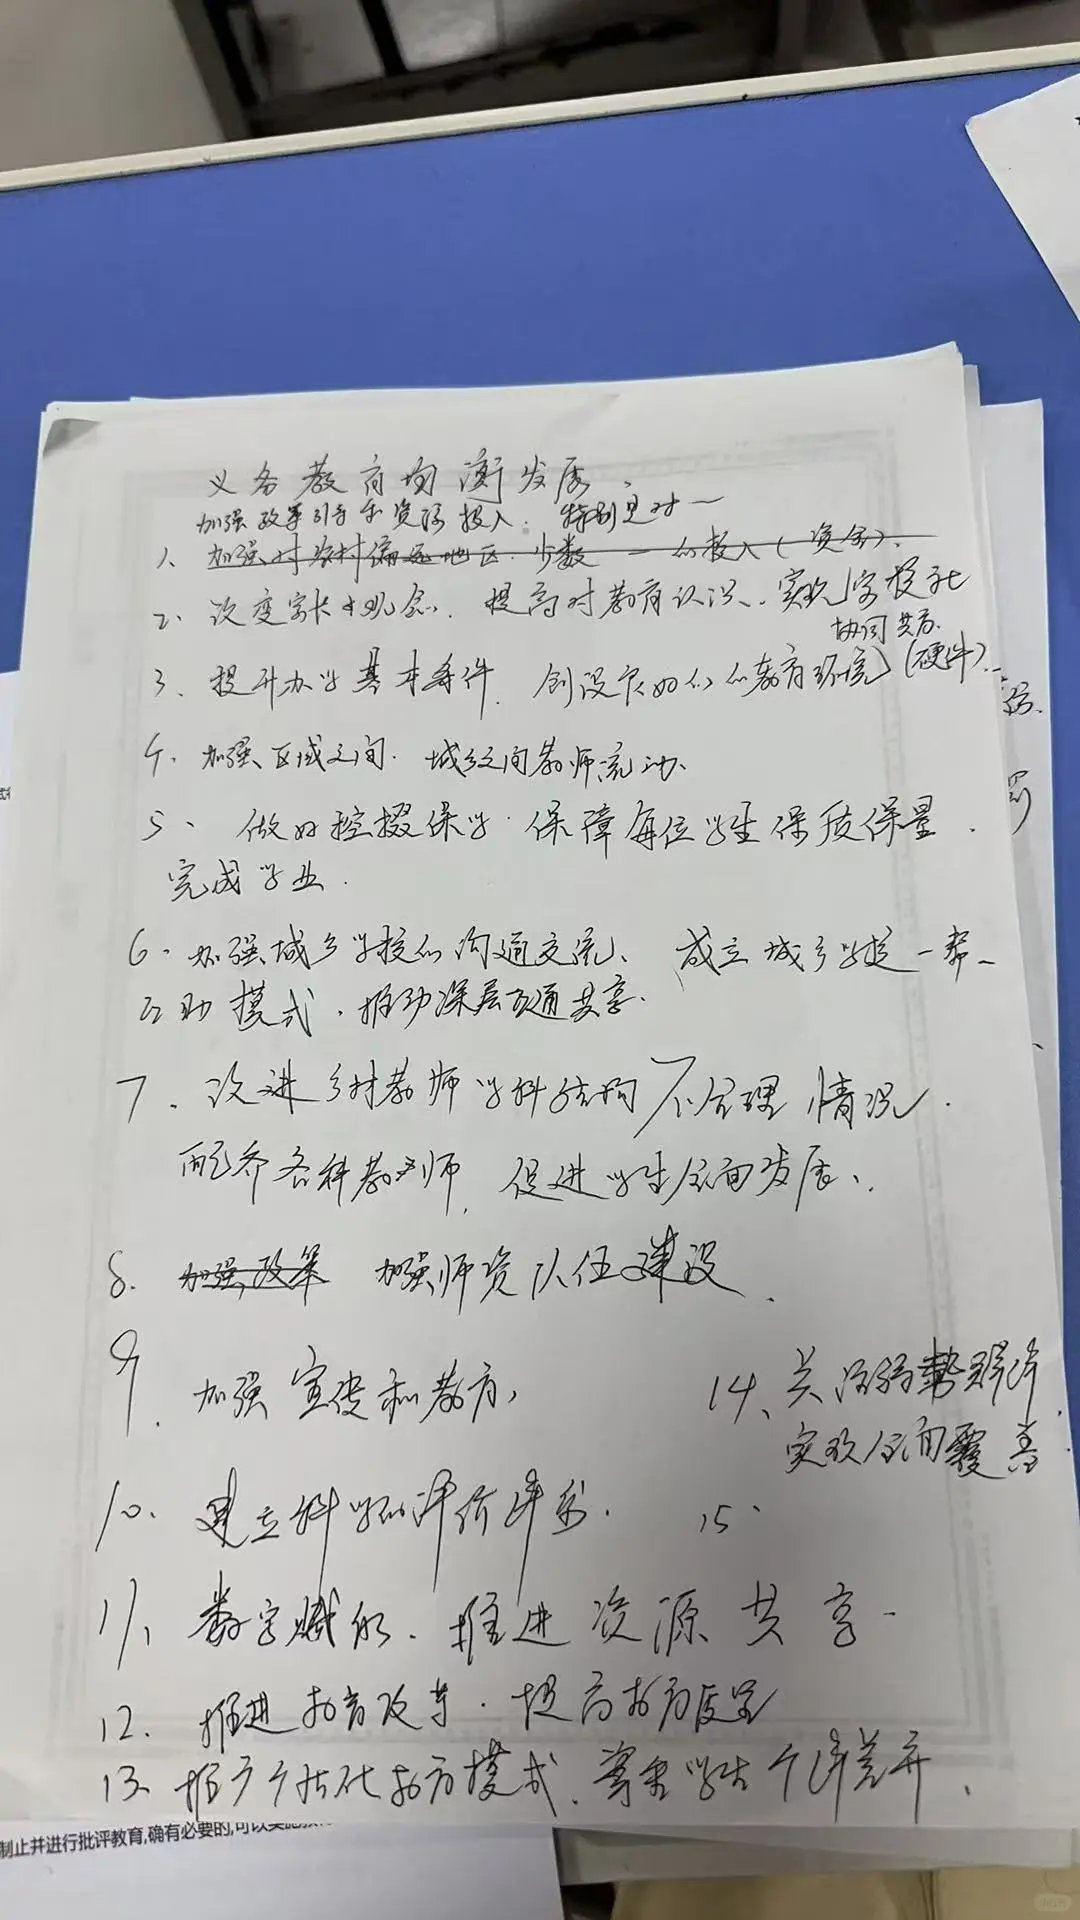 义务教育均衡发展
加强政策引导和资源投入、特别是对一
1、加强对农村偏远地区、少数一的投入(资金)、
2、改变家长的观念、提高对教育认识、实现家校社
协同共育
3、提升办学基本条件、创设良好的教育环境(硬件)
4、加强区域之间、城乡之间教师流动、
5、做好控辍保学、保障每位学生保质保量
完成学业.
6、加强城乡学校的沟通交流、成立城乡学校一帮一
互助模式、推动深层互通共享.
7、改进乡村教师学科结构不合理情况.
配齐各科教师,促进学生全面发展、
8、加强政策 加强师资队伍建设、
9、加强宣传和教育,
14、关注弱势群体
实现全面覆盖
10、建立科学的评价体系.
15、
11、数字赋能、推进资源共享.
12、推进教育改革、提高教育质量
13、推广个性化教育模式、尊重学生个体差异、
制止并进行批评教育,确有必要的,可以实施